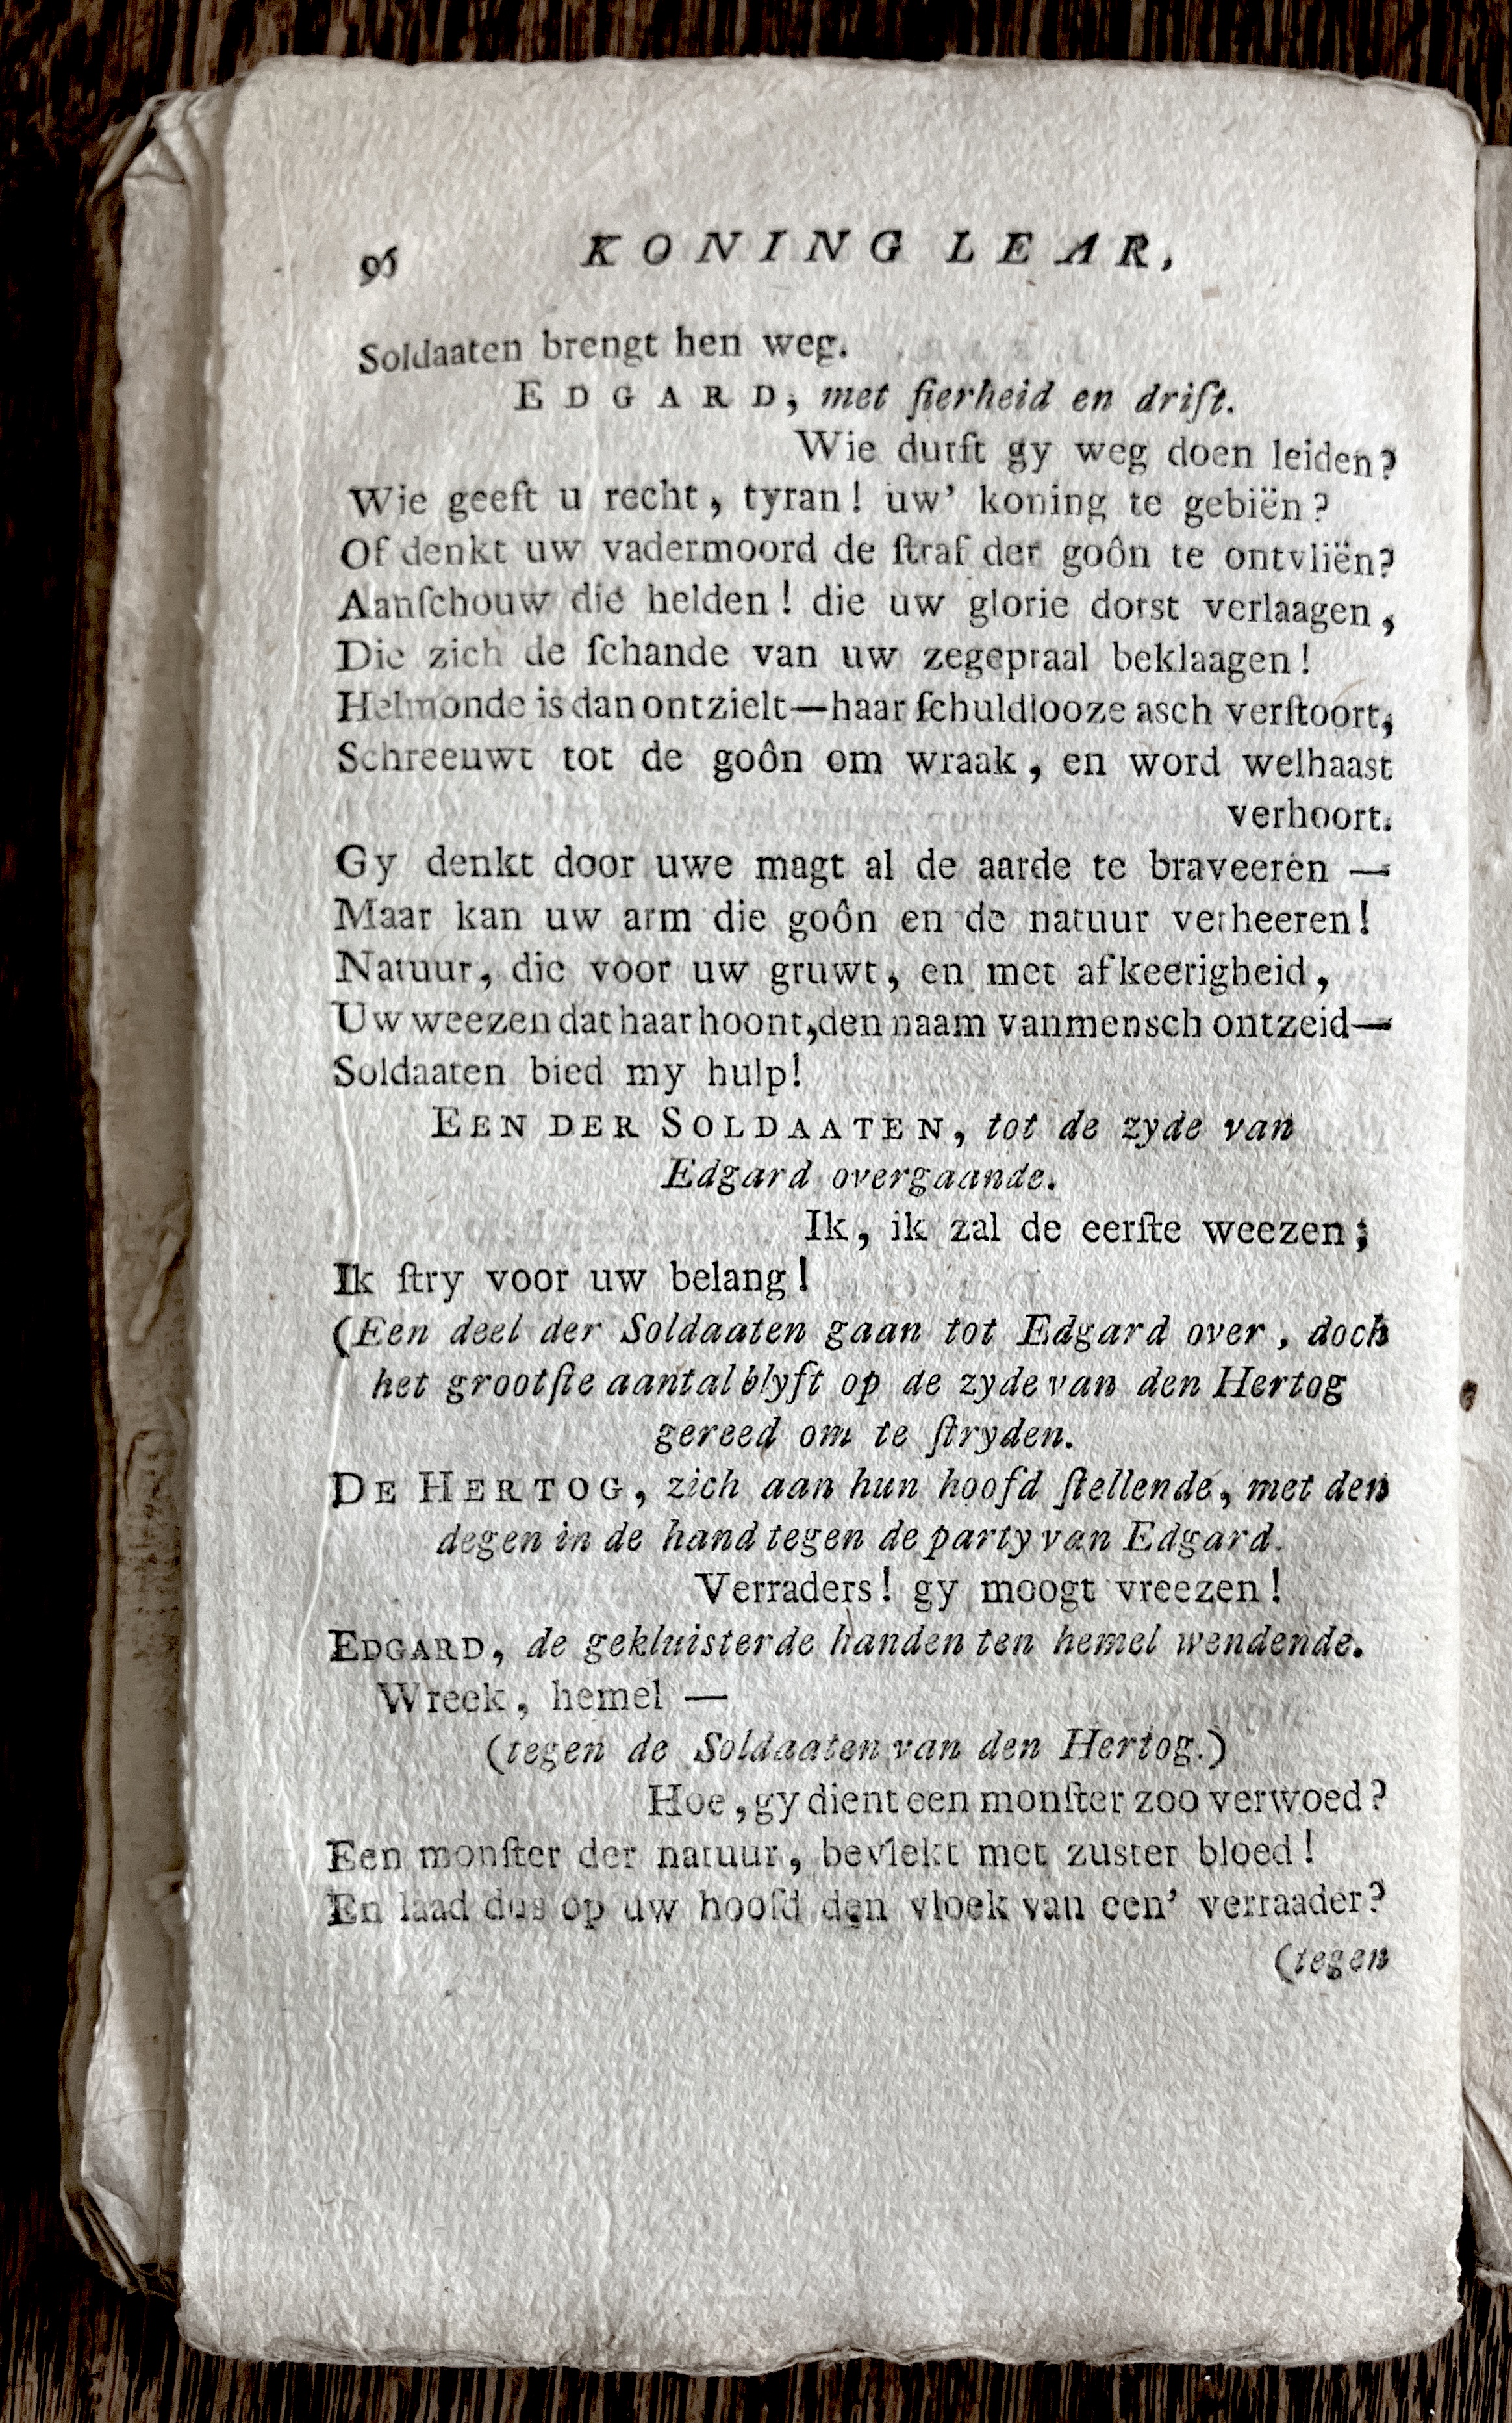 96 KONING LEAR,
Soldaaten brengt hen weg.
EDGARD, met fierheid en drift.
Wie durft gy weg doen leiden?
Wie geeft u recht, tyran! uw' koning te gebiën?
Of denkt uw vadermoord de ſtraf der goôn te ontvliën?
Aanſchouw die helden! die uw glorie dorst verlaagen,
Die zich de ſchande van uw zegepraal beklaagen!
Helmonde is dan ontzielt—haar ſchuldlooze asch verſtoort,
Schreeuwt tot de goôn om wraak, en word welhaast
verhoort.
Gy denkt door uwe magt al de aarde te braveeren —
Maar kan uw arm die goôn en de natuur verheeren!
Natuur, die voor uw gruwt, en met afkeerigheid,
Uw weezen dat haar hoont, den naam van mensch ontzeid—
Soldaaten bied my hulp!
EEN DER SOLDAATEN, tot de zyde van
Edgard overgaande.
Ik, ik zal de eerſte weezen;
Ik ſtry voor uw belang!
(Een deel der Soldaaten gaan tot Edgard over, doch
het grootſte aantal blyft op de zyde van den Hertog
gereed om te ſtryden.
DE HERTOG, zich aan hun hoofd ſtellende, met den
degen in de hand tegen de party van Edgard.
Verraders! gy moogt vreezen!
EDGARD, de gekluisterde handen ten hemel wendende.
Wreek, hemel —
(tegen de Soldaaten van den Hertog.)
Hoe, gy dient een monſter zoo verwoed?
Een monſter der natuur, bevlekt met zuster bloed!
En laad dus op uw hoofd den vloek van een' verraader?
(tegen